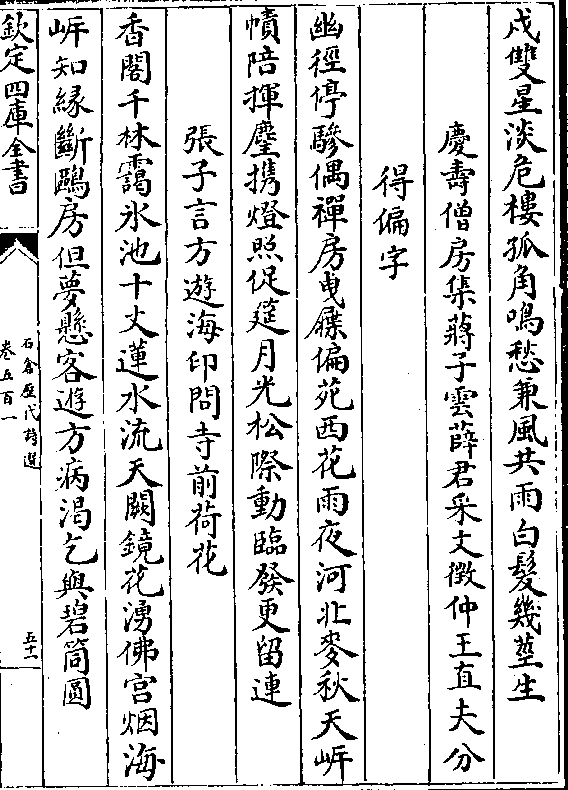 戍雙星淡危樓孤角鳴愁兼風共雨白髮幾莖生
慶壽僧房集蔣子雲薛君采文徵仲王直夫分
得偏字
幽徑停驂偶禪房曳屧偏苑西花雨夜河北麥秋天岸
幘陪揮麈携燈照促筵月光松際動臨發更留連
張子言方遊海印問寺前荷花
香閣千林靄氷池十丈蓮水流天闕鏡花湧佛宫烟海
岸知緣斷鷗房但夢懸客遊方病渴乞與碧筒圓
欽定四庫全書
石倉歷代詩選
卷五百一
五十一